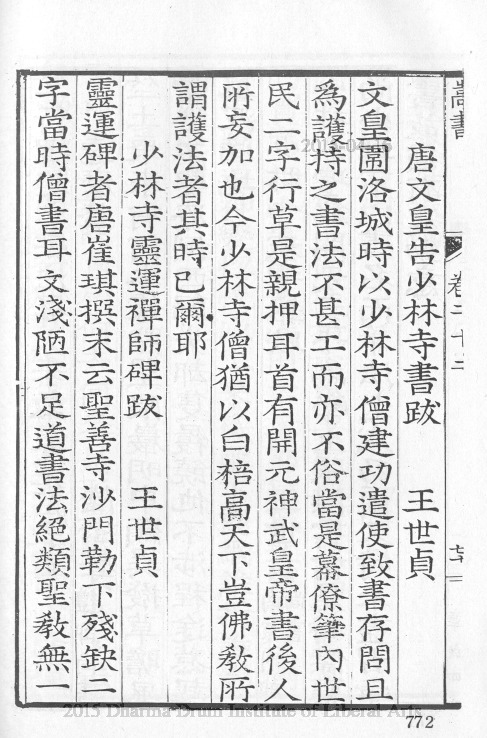 嵩書 卷二十二
唐文皇告少林寺書跋 王世貞
文皇圍洛城時以少林寺僧建功遣使致書存問且
爲護持之書法不甚工而亦不俗當是幕僚筆內世
民二字行草是親押耳首有開元神武皇帝書後人
所妄加也今少林寺僧猶以白棓高天下豈佛敎所
謂護法者其時已爾耶
少林寺靈運禪師碑跋 王世貞
靈運碑者唐崔琪撰末云聖善寺沙門勒下殘缺二
字當時僧書耳文淺陋不足道書法絕類聖敎無一
2015 Dharma Drum Institute of Liberal Arts
772